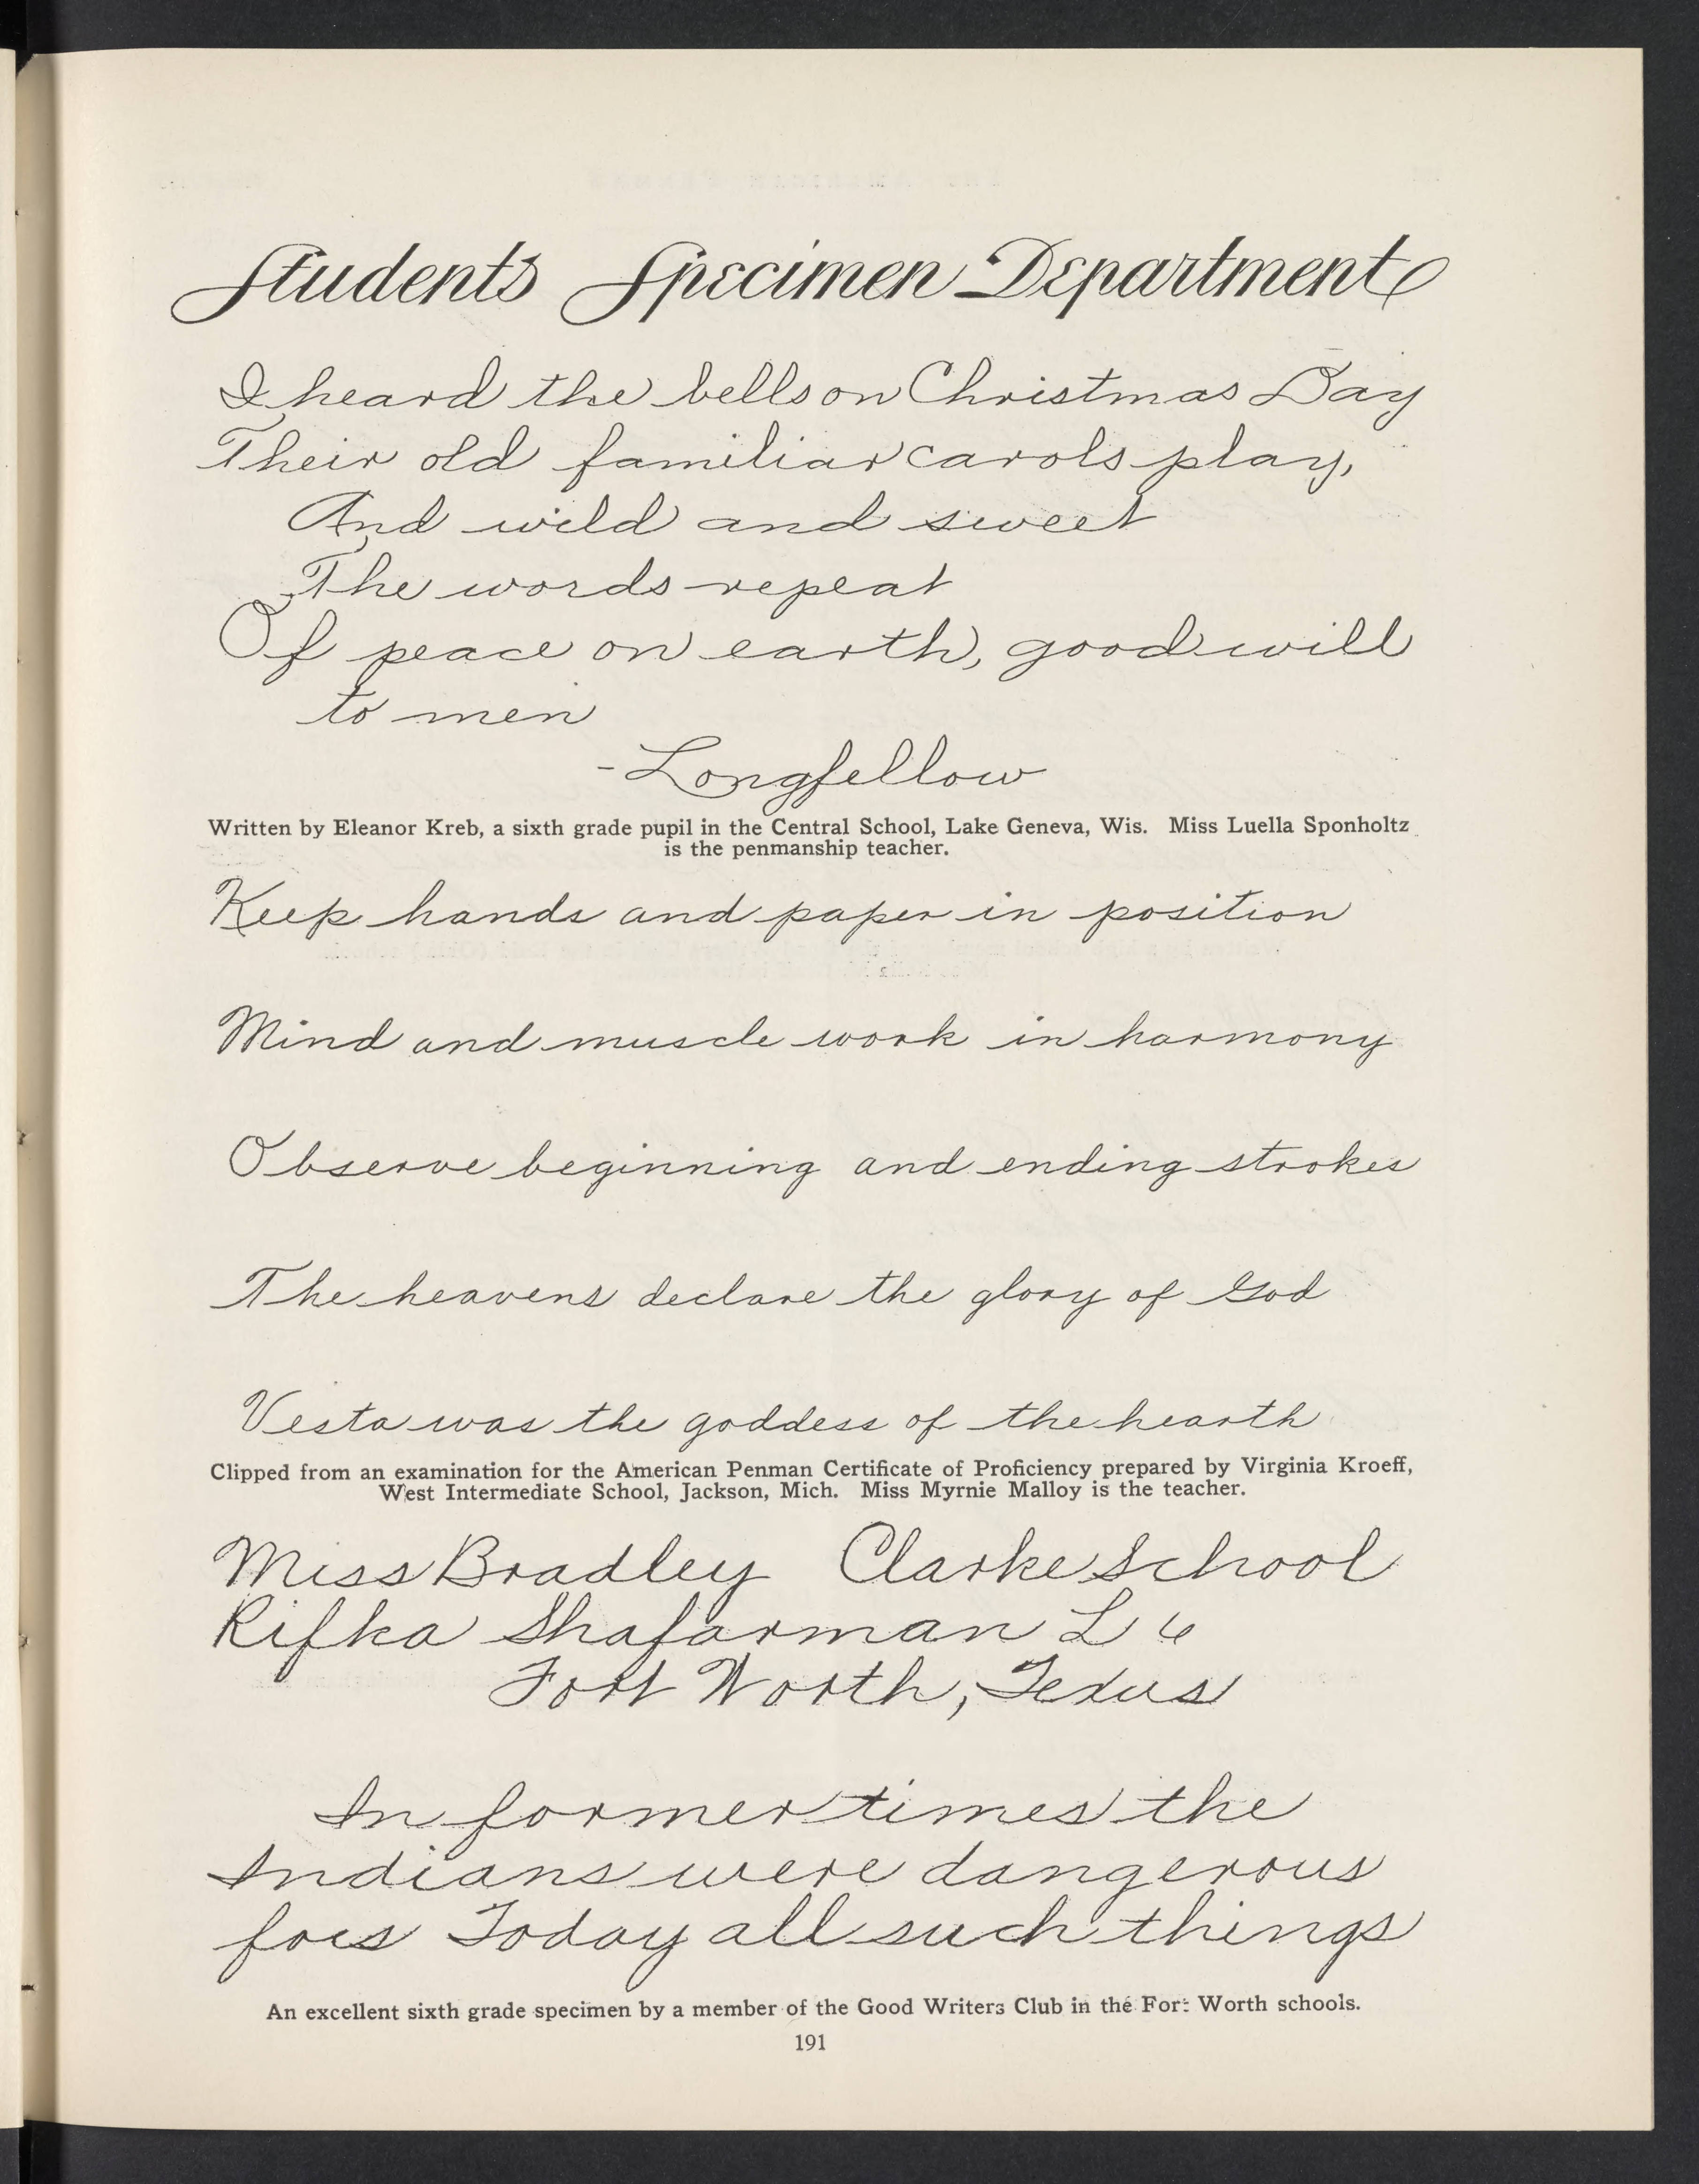 Students' Specimen Department
I heard the bells on Christmas Day
Their old familiar carols play,
And wild and sweet
The words repeat
Of peace on earth, good will
to men
- Longfellow
Written by Eleanor Kreb, a sixth grade pupil in the Central School, Lake Geneva, Wis. Miss Luella Sponholtz
is the penmanship teacher.
Keep hands and paper in position
Mind and muscle work in harmony
Observe beginning and ending strokes
The heavens declare the glory of God
Vesta was the goddess of the hearth
Clipped from an examination for the American Penman Certificate of Proficiency prepared by Virginia Kroeff,
West Intermediate School, Jackson, Mich. Miss Myrnie Malloy is the teacher.
Miss Bradley Clarke School
Rifka Shafarman L 6
Fort Worth, Texas
In former times the
Indians were dangerous
foes Today all such things
An excellent sixth grade specimen by a member of the Good Writers Club in the Fort Worth schools.
191